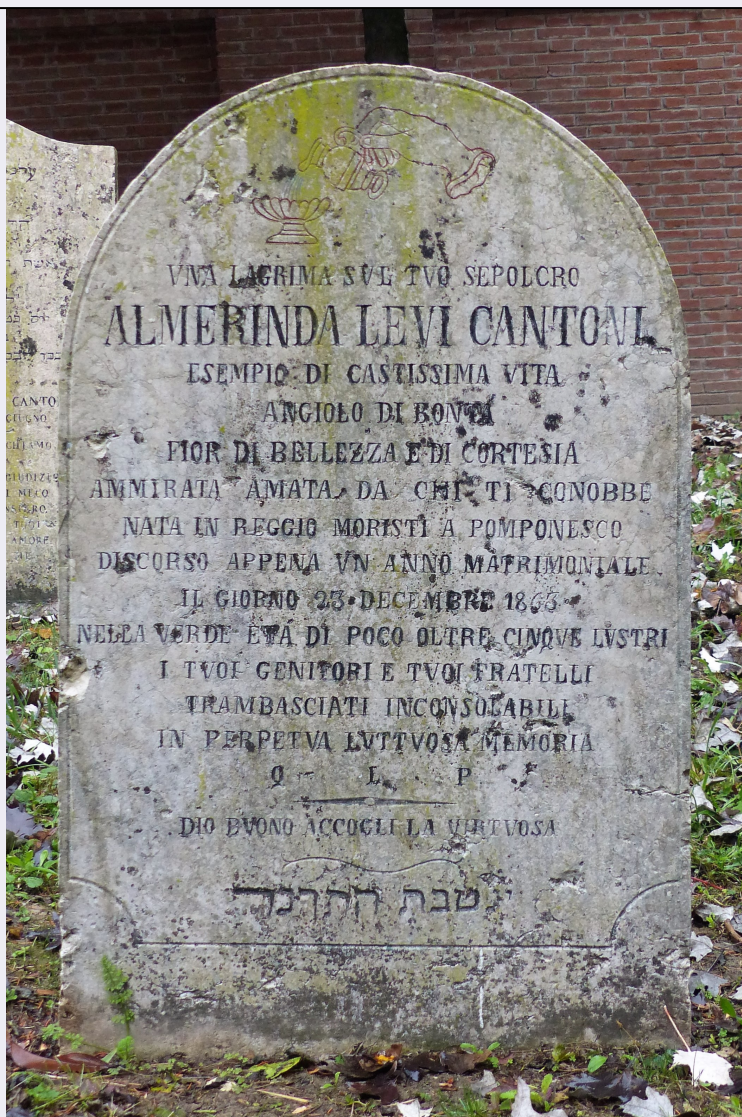 VNA LAGRIMA SVL TVO SEPOLCRO
ALMERINDA LEVI CANTONI
ESEMPIO DI CASTISSIMA VITA
ANGIOLO DI BONTÀ
FIOR DI BELLEZZA E DI CORTESIA
AMMIRATA AMATA DA CHI TI CONOBBE
NATA IN REGGIO MORISTI A POMPONESCO
DISCORSO APPENA VN ANNO MATRIMONIALE
IL GIORNO 23 DECEMBRE 1863
NELLA VERDE ETÀ DI POCO OLTRE CINQVE LVSTRI
I TVOI GENITORI E TVOI FRATELLI
TRAMBASCIATI INCONSOLABILI
IN PERPETVA LVTTVOSA MEMORIA
Q L P
DIO BVONO ACCOGLI LA VIRTVOSA
יג טבת התרכד
CANTO